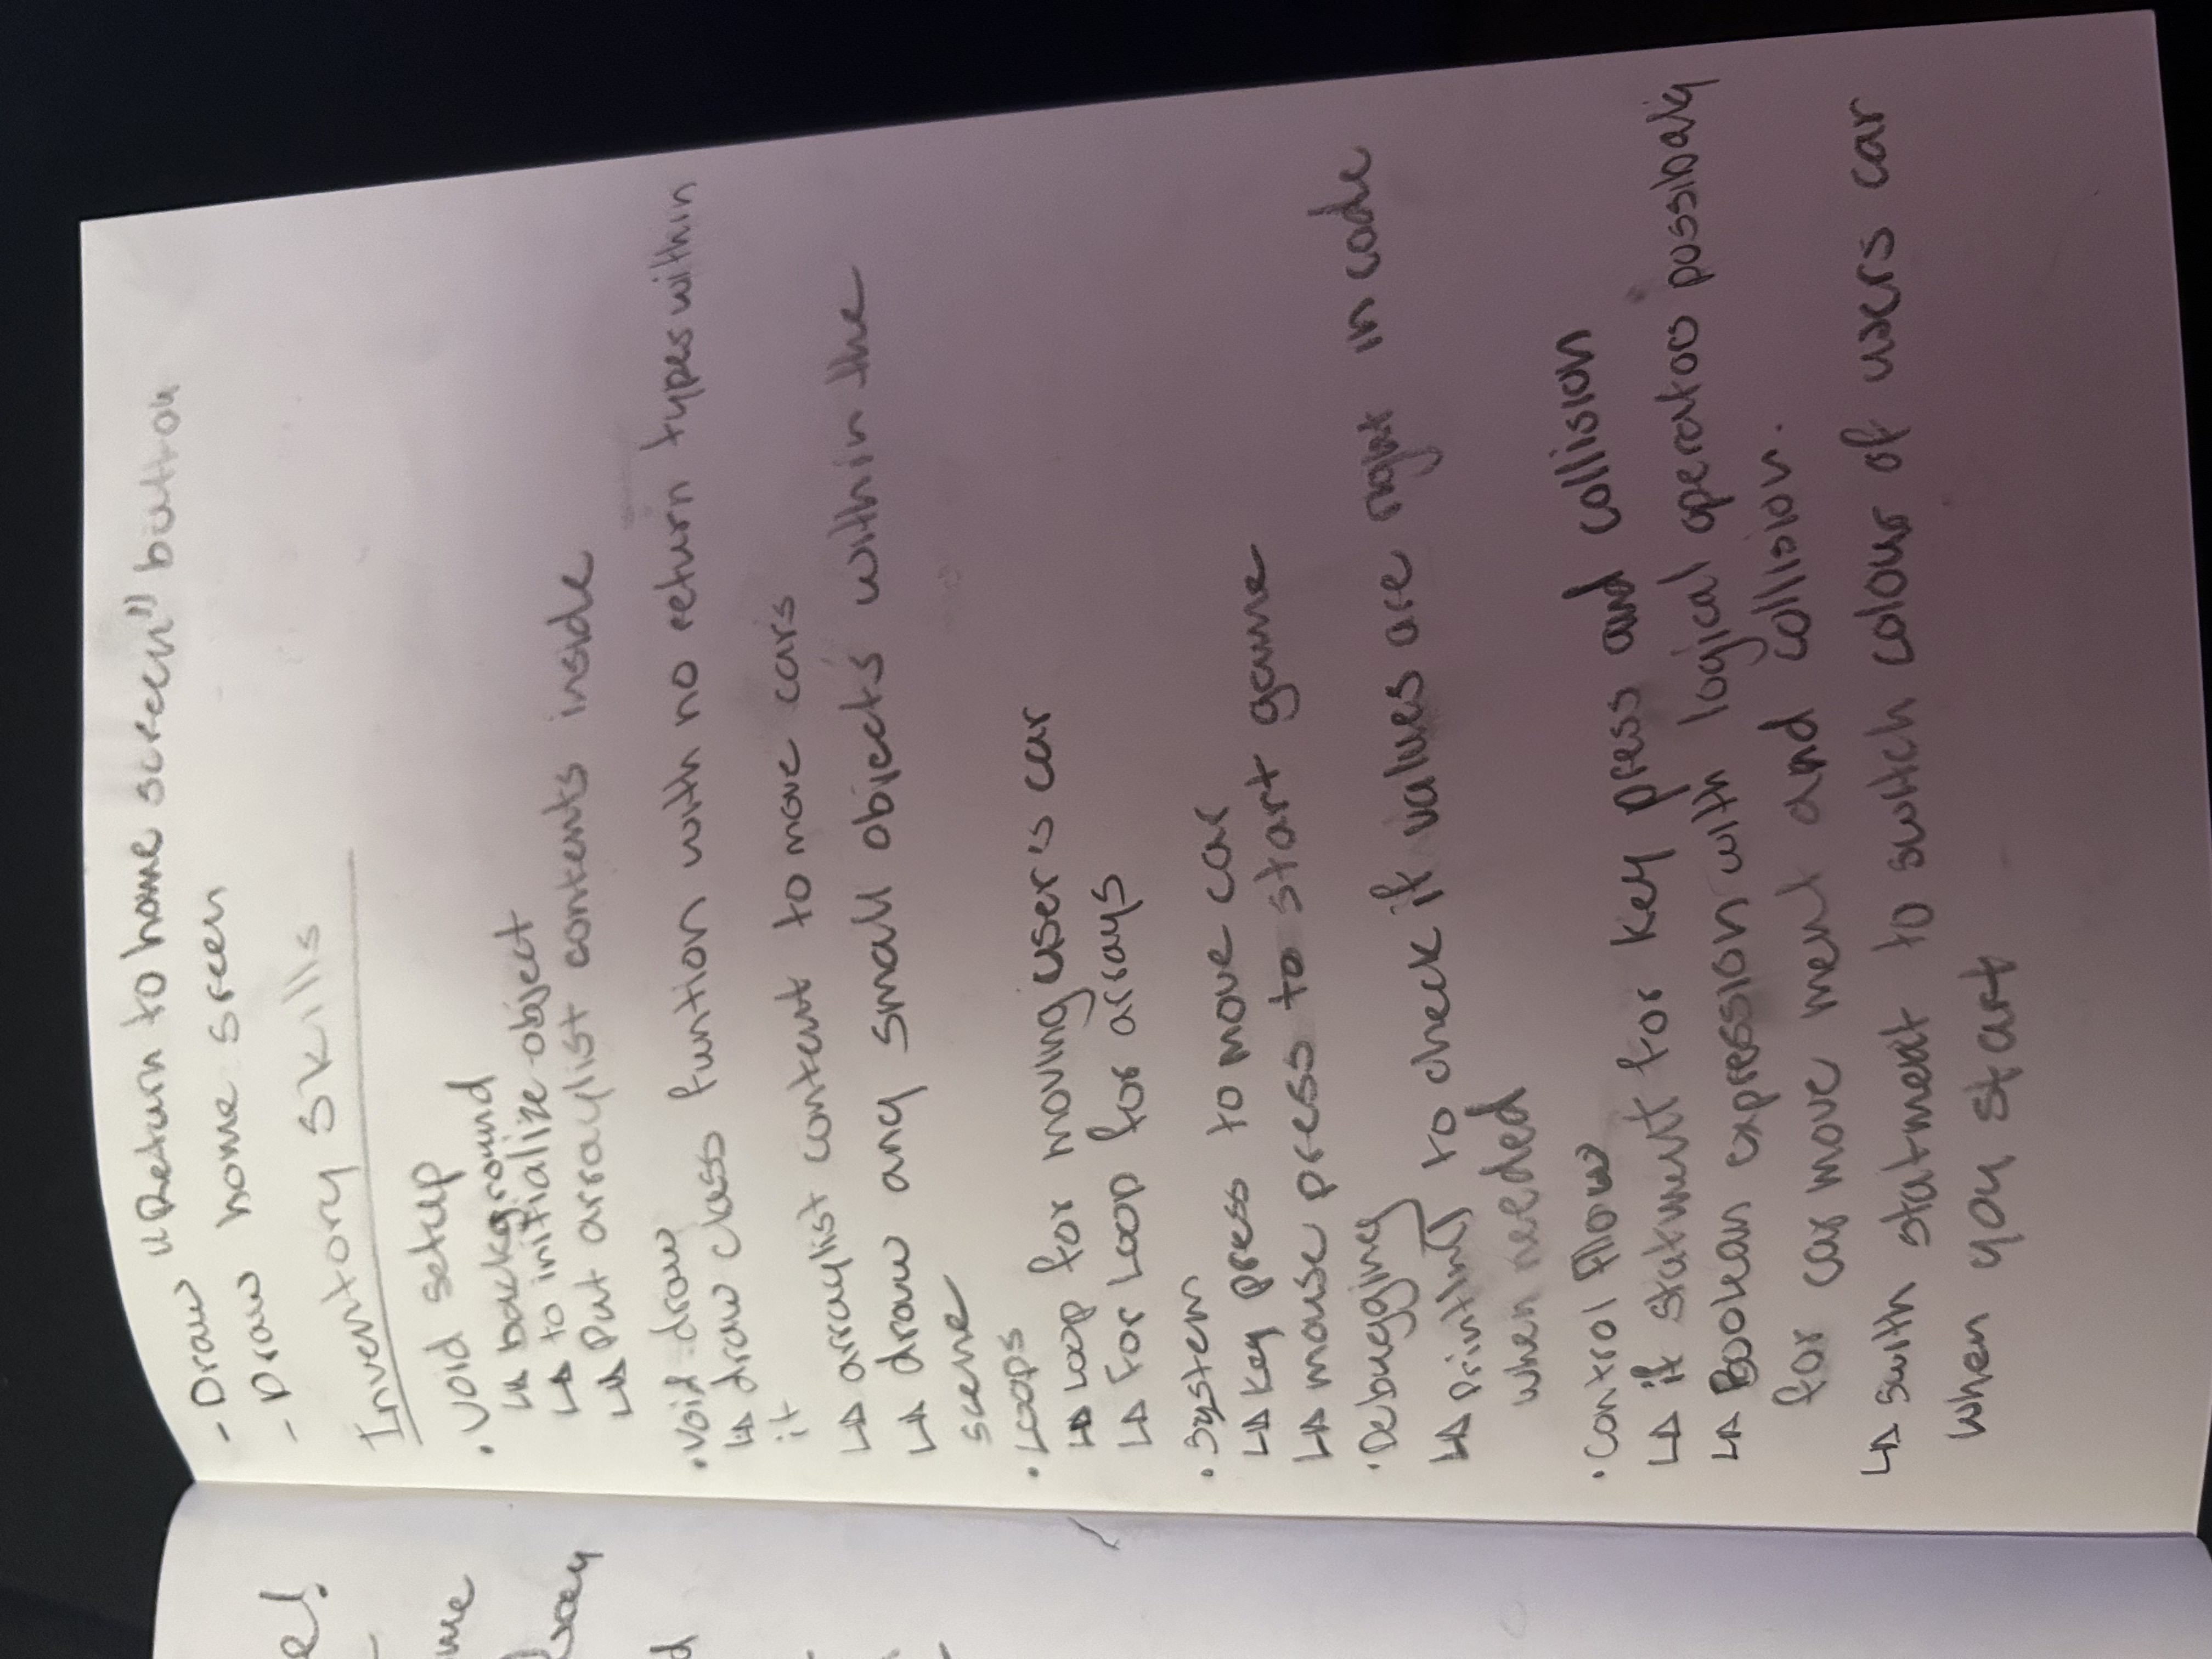 - Draw "Return to home screen" button
- Draw home sreen
Inventory Skills
• void setup
↳ background
↳ to initialize object
↳ Put arraylist contents inside
• void draw
↳ draw class funtion with no return types within
it
↳ arraylist content to move cars
↳ draw any small objects within the
scene
• Loops
↳ Loop for moving user's car
↳ For Loop for arrays
• System
↳ key press to move car
↳ mouse press to start game
• Debugging
↳ println() to check if values are right in code
when needed
• Control Flow
↳ if statment for key press and collision
↳ Boolean expression with logical operators
for car move ment and collision.
↳ swith statment to switch colour of users car
when you start